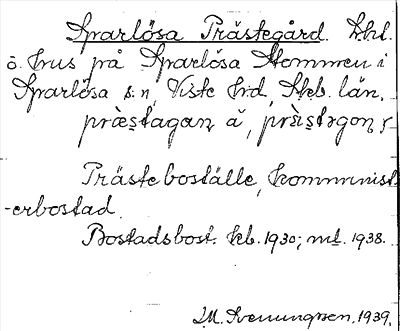 Sparlösa Prästegård. Skl.
ö. hus på Sparlösa Stommen i
Sparlösa s:n, Viste hd, Skb. län.
præstagaɳ ă, præ̀stəgoɳ ς
Prästeboställe, kommunist-
-erbostad.
Bostadsbost. kb. 1930; mt. 1938.
I.M. Svenungsson, 1939.